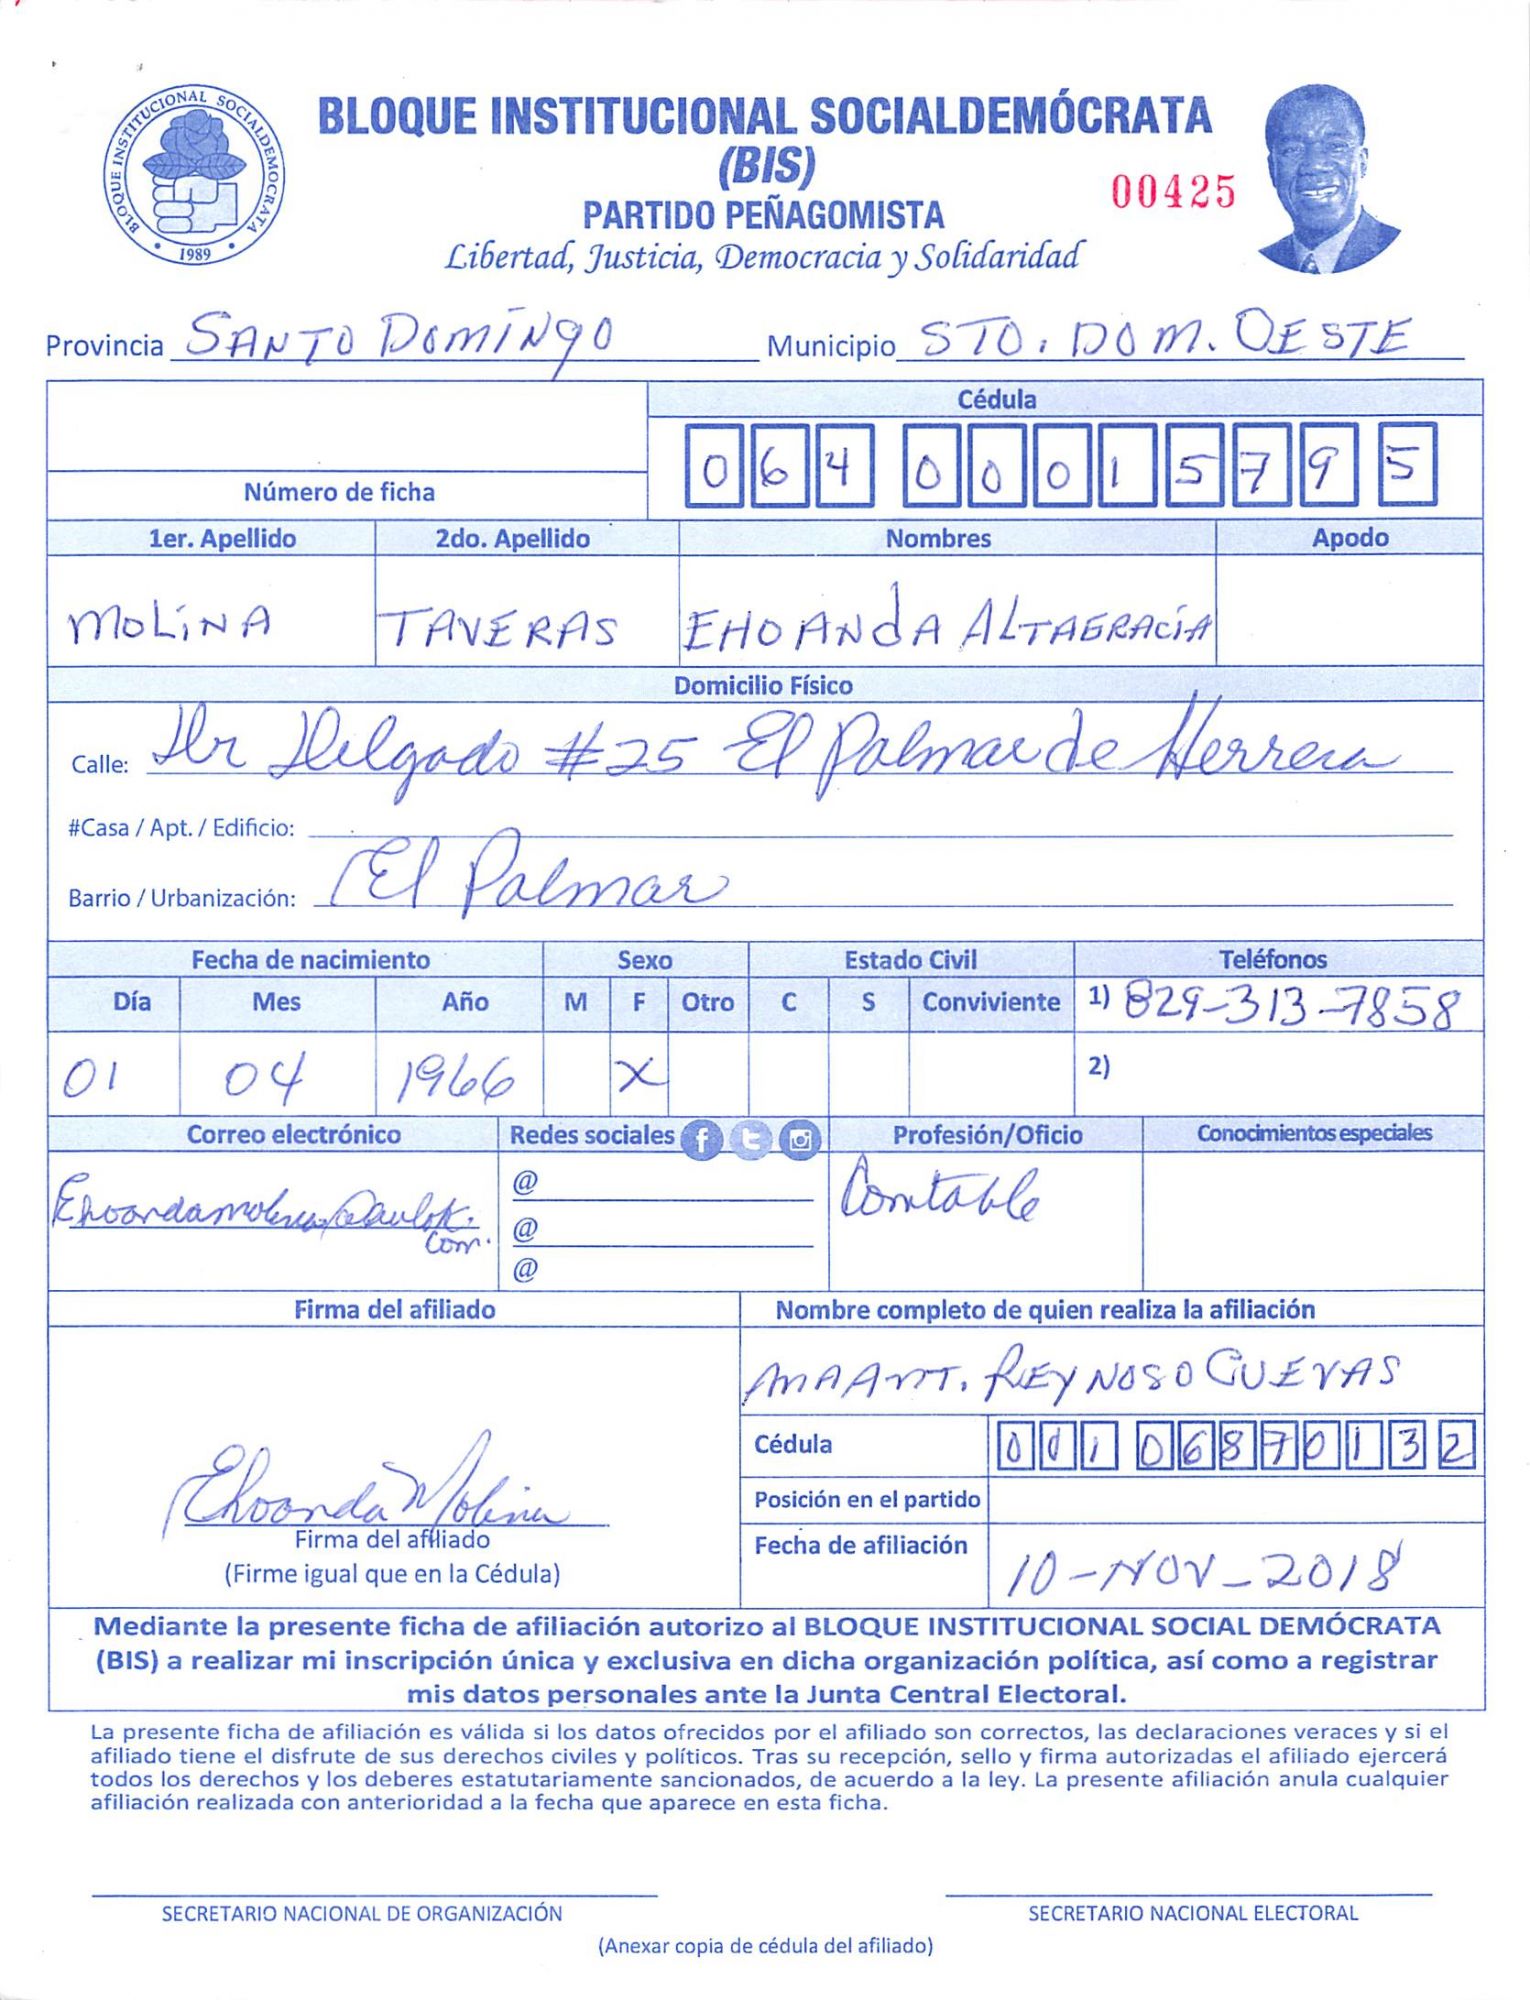 BLOQUE INSTITUCIONAL SOCIALDEMOCRATA
1989
BLOQUE INSTITUCIONAL SOCIALDEMÓCRATA
(BIS)
00425
PARTIDO PEÑAGOMISTA
Libertad, Justicia, Democracia y Solidaridad
Provincia SANTO DOMINGO Municipio STO. DOM. OESTE
Cédula
064 0001579 5
Número de ficha
1er. Apellido 2do. Apellido Nombres Apodo
MOLINA TAVERAS EHOANDA ALTAGRACIA
Domicilio Físico
Calle: Dr Delgado #25 El Palmar de Herrera
#Casa / Apt. / Edificio:
Barrio / Urbanización: El Palmar
Fecha de nacimiento Sexo Estado Civil Teléfonos
Día Mes Año M F Otro C S Conviviente 1) 829-313-7858
01 04 1966 X 2)
Correo electrónico Redes sociales f t Profesión/Oficio Conocimientos especiales
@ Contable
com.
@
@
Firma del afiliado Nombre completo de quien realiza la afiliación
ANT. REYNOSO CUEVAS
Cédula 001 0687013 2
Ehoanda Molina
Posición en el partido
Firma del afiliado
Fecha de afiliación 10-NOV-2018
(Firme igual que en la Cédula)
Mediante la presente ficha de afiliación autorizo al BLOQUE INSTITUCIONAL SOCIAL DEMÓCRATA
(BIS) a realizar mi inscripción única y exclusiva en dicha organización política, así como a registrar
mis datos personales ante la Junta Central Electoral.
La presente ficha de afiliación es válida si los datos ofrecidos por el afiliado son correctos, las declaraciones veraces y si el
afiliado tiene el disfrute de sus derechos civiles y políticos. Tras su recepción, sello y firma autorizadas el afiliado ejercerá
todos los derechos y los deberes estatutariamente sancionados, de acuerdo a la ley. La presente afiliación anula cualquier
afiliación realizada con anterioridad a la fecha que aparece en esta ficha.
SECRETARIO NACIONAL DE ORGANIZACIÓN SECRETARIO NACIONAL ELECTORAL
(Anexar copia de cédula del afiliado)